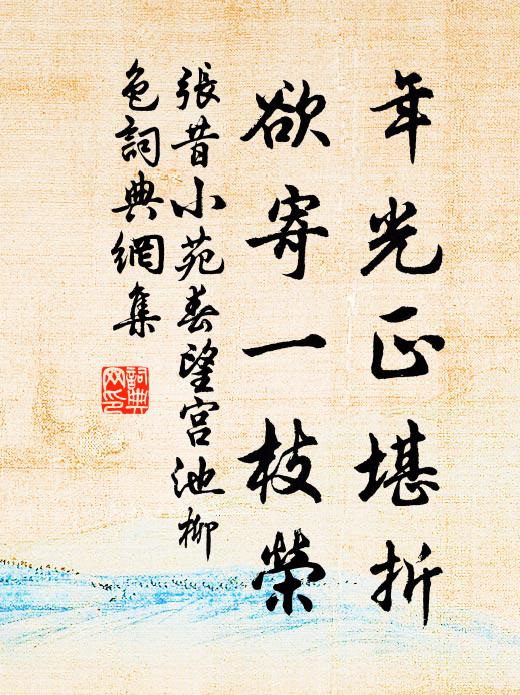 年光正堪折
欲寄一枝榮
張昔小苑春望宮池柳
色詞典網集
詞典
网印